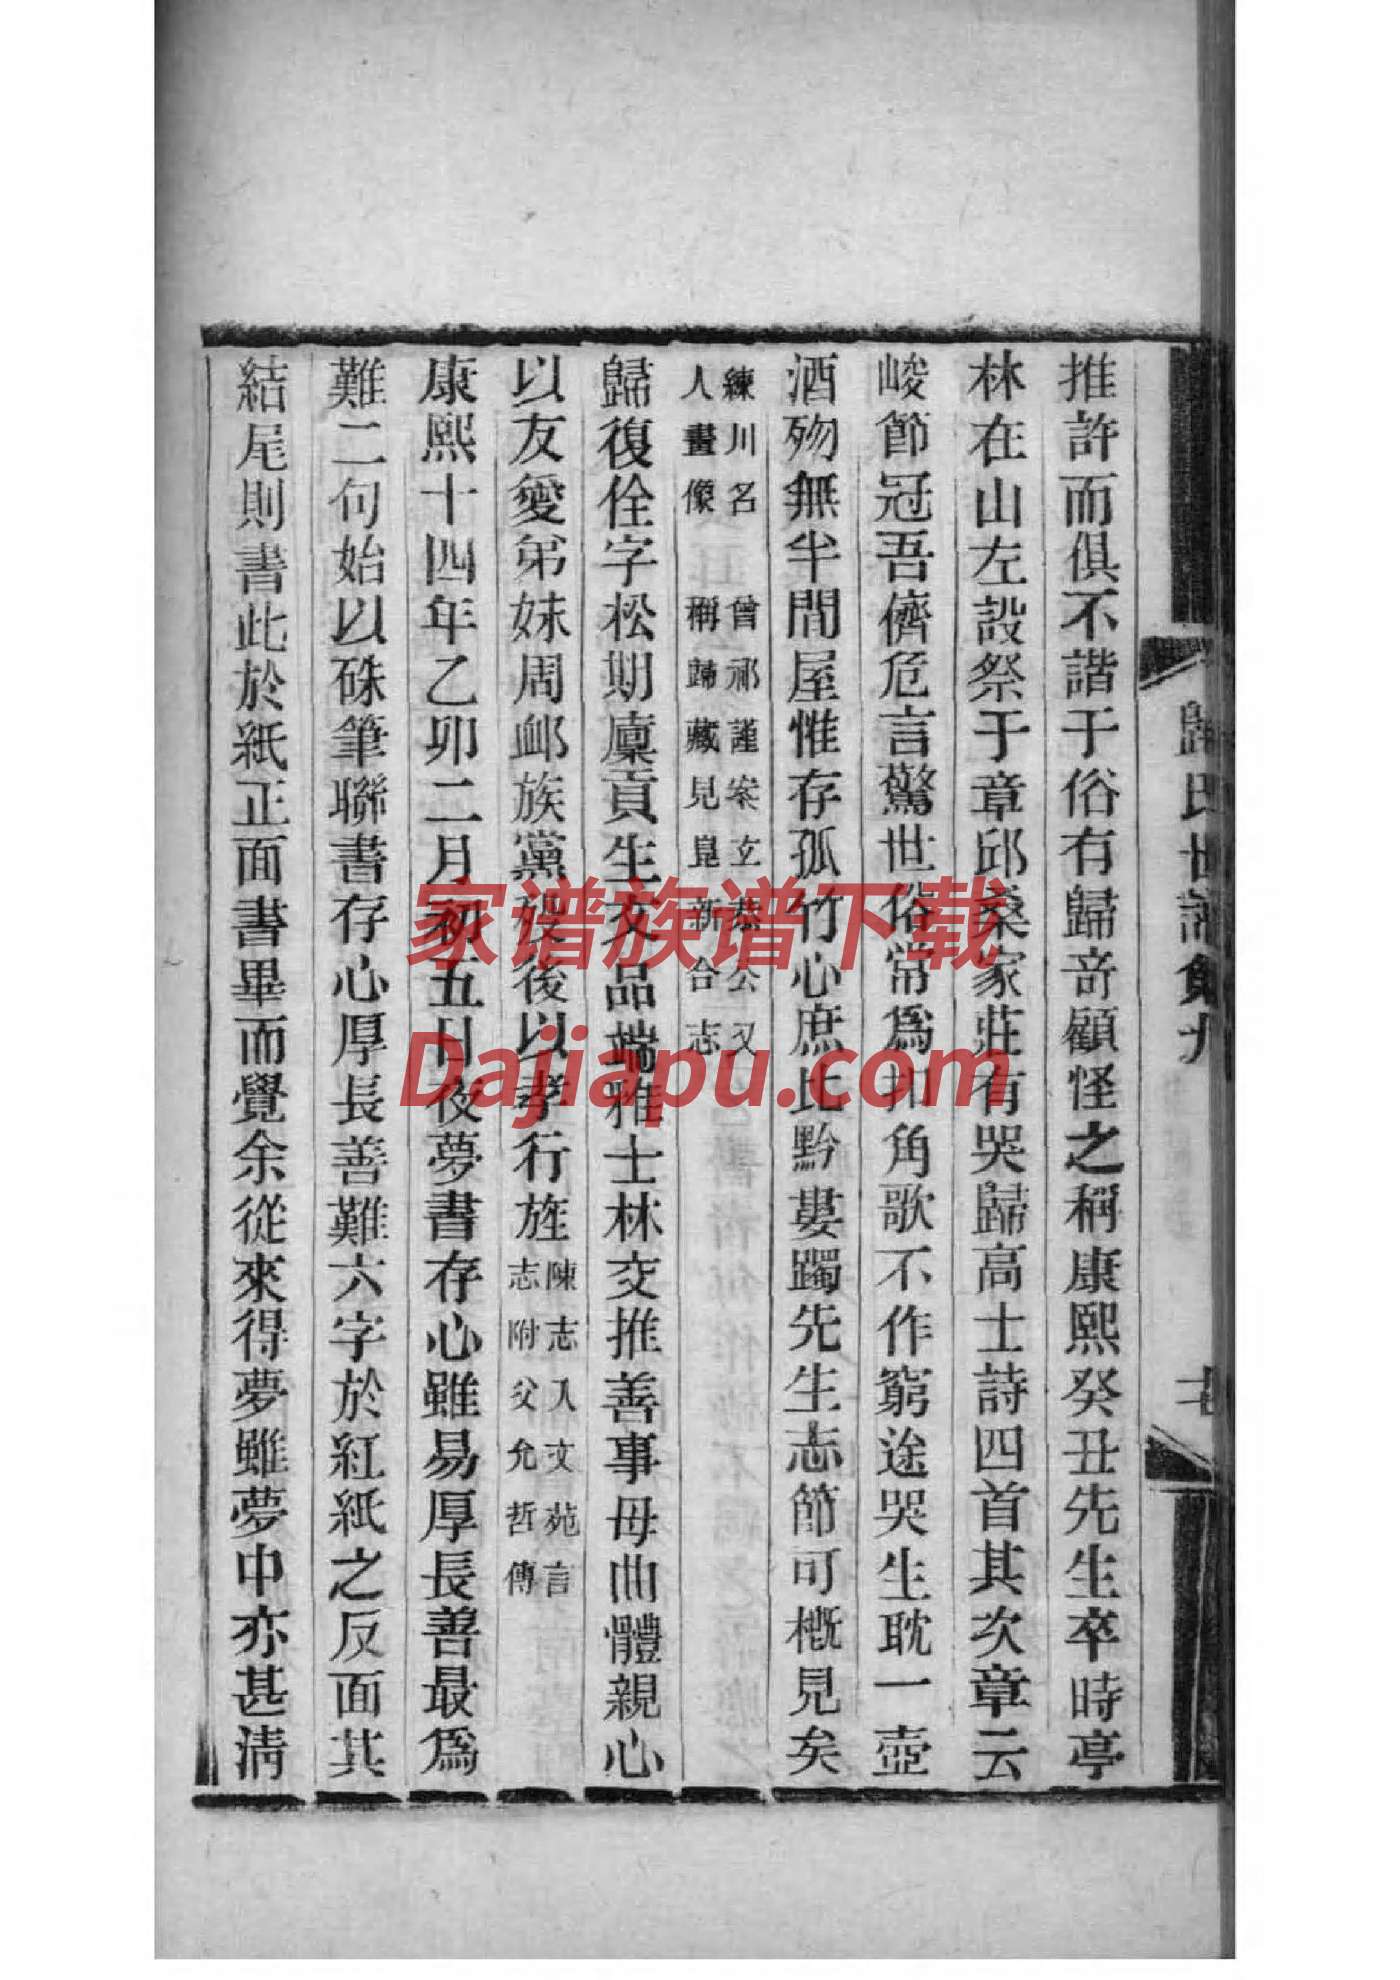 歸氏世譜第九
推許而俱不諧于俗有歸竒顧怪之稱康熙癸丑先生卒時亭
林在山左設祭于章邱桑家莊有哭歸高士詩四首其次章云
峻節冠吾儕危言驚世俗常爲扣角歌不作窮途哭生耽一壺
酒歿無半間屋惟存孤竹心庶比黔婁躅先生志節可概見矣
練川名 曾祁謹案立恭公又
人畫像 稱歸藏見崑新合志
歸復佺字松期廩貢生文品端雅士林交推善事母曲體親心
以友愛弟妹周卹族黨歿後以孝行旌
陳志入文苑言
志附父允哲傳
康熙十四年乙卯二月初五日夜夢書存心雖易厚長善最爲
難二句始以硃筆聯書存心厚長善難六字於紅紙之反面其
結尾則書此於紙正面書畢而覺余從來得夢雖夢中亦甚淸
家谱族谱下载
Dajiapu.com